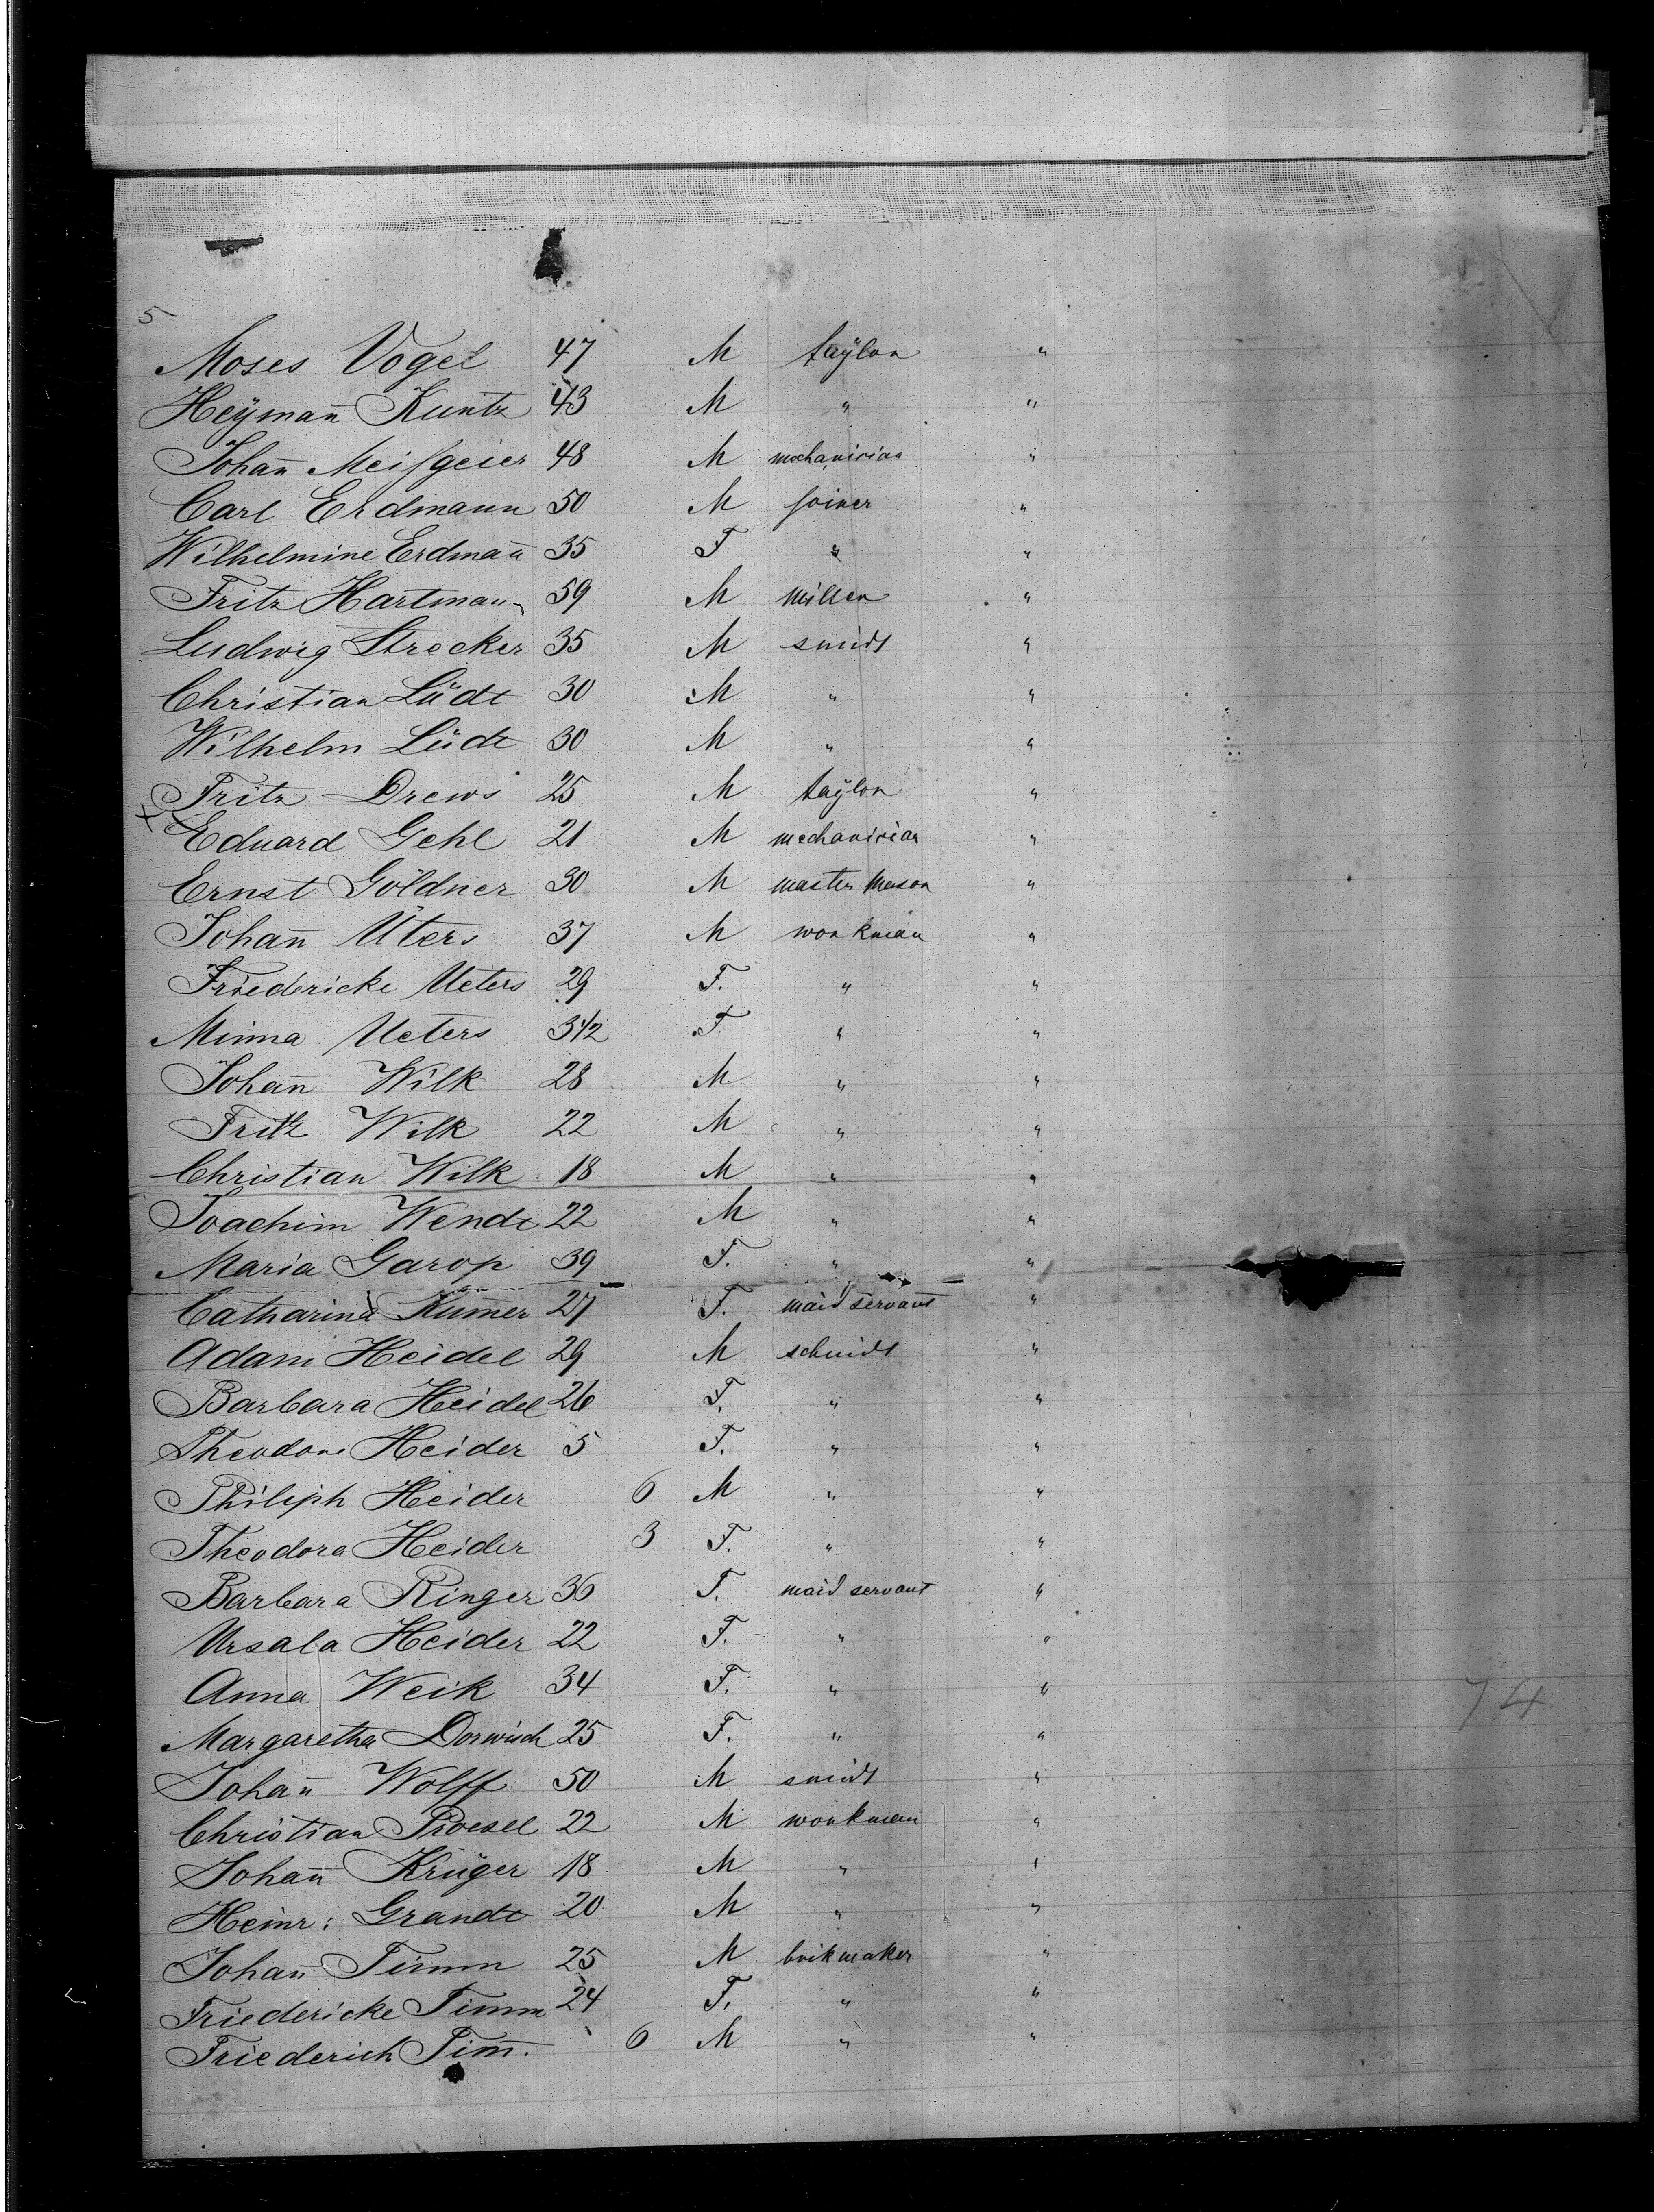 5
Moses Vogel 47 M taÿlor "
Heÿman̄ Kuntz 43 M " "
Johan̄ Meiſgeier 48 M mechanician "
Carl Erdmann 50 M joiner "
Wilhelmine Erdman̄ 35 F " "
Fritz Hartmann 59 M miller "
Ludwig Strecker 35 M smidt "
Christian Lüdt 30 M " "
Wilhelm Lüdt 30 M " "
Fritz Drews 25 M taÿlor "
x Eduard Gehl 21 M mechanician "
Ernst Göldner 30 M master mason "
Johan̄ Üters 37 M workman "
Friedericke Ueters 29 F. " "
Minna Ueters 3 1/2 F " "
Johan̄ Wilk 28 M " "
Fritz Wilk 22 M " "
Christian Wilk 18 M " "
Joachim Wendt 22 M " "
Maria Garop 39 F. " "
Catharina Kum̄er 27 F. maid servant "
Adam Heidel 29 M schmidt "
Barbara Heidel 26 F. " "
Theodore Heider 5 F. " "
Philiph Heider 6 M " "
Theodora Heider 3 F. " "
Barbara Ringer 36 F. maid servant "
Ursala Heider 22 F. " "
Anna Weik 34 F. " "
Margaretha 25 F. " "
Johan̄ Wolff 50 M smidt "
Christian 22 M workman "
Johan̄ Krüger 18 M " "
Heinr: Grandt 20 M " "
Johan̄ Timm 25 M brikmaker "
Friedericke Timm 24 F. " "
Friederich Tim̄. 6 M " "
74